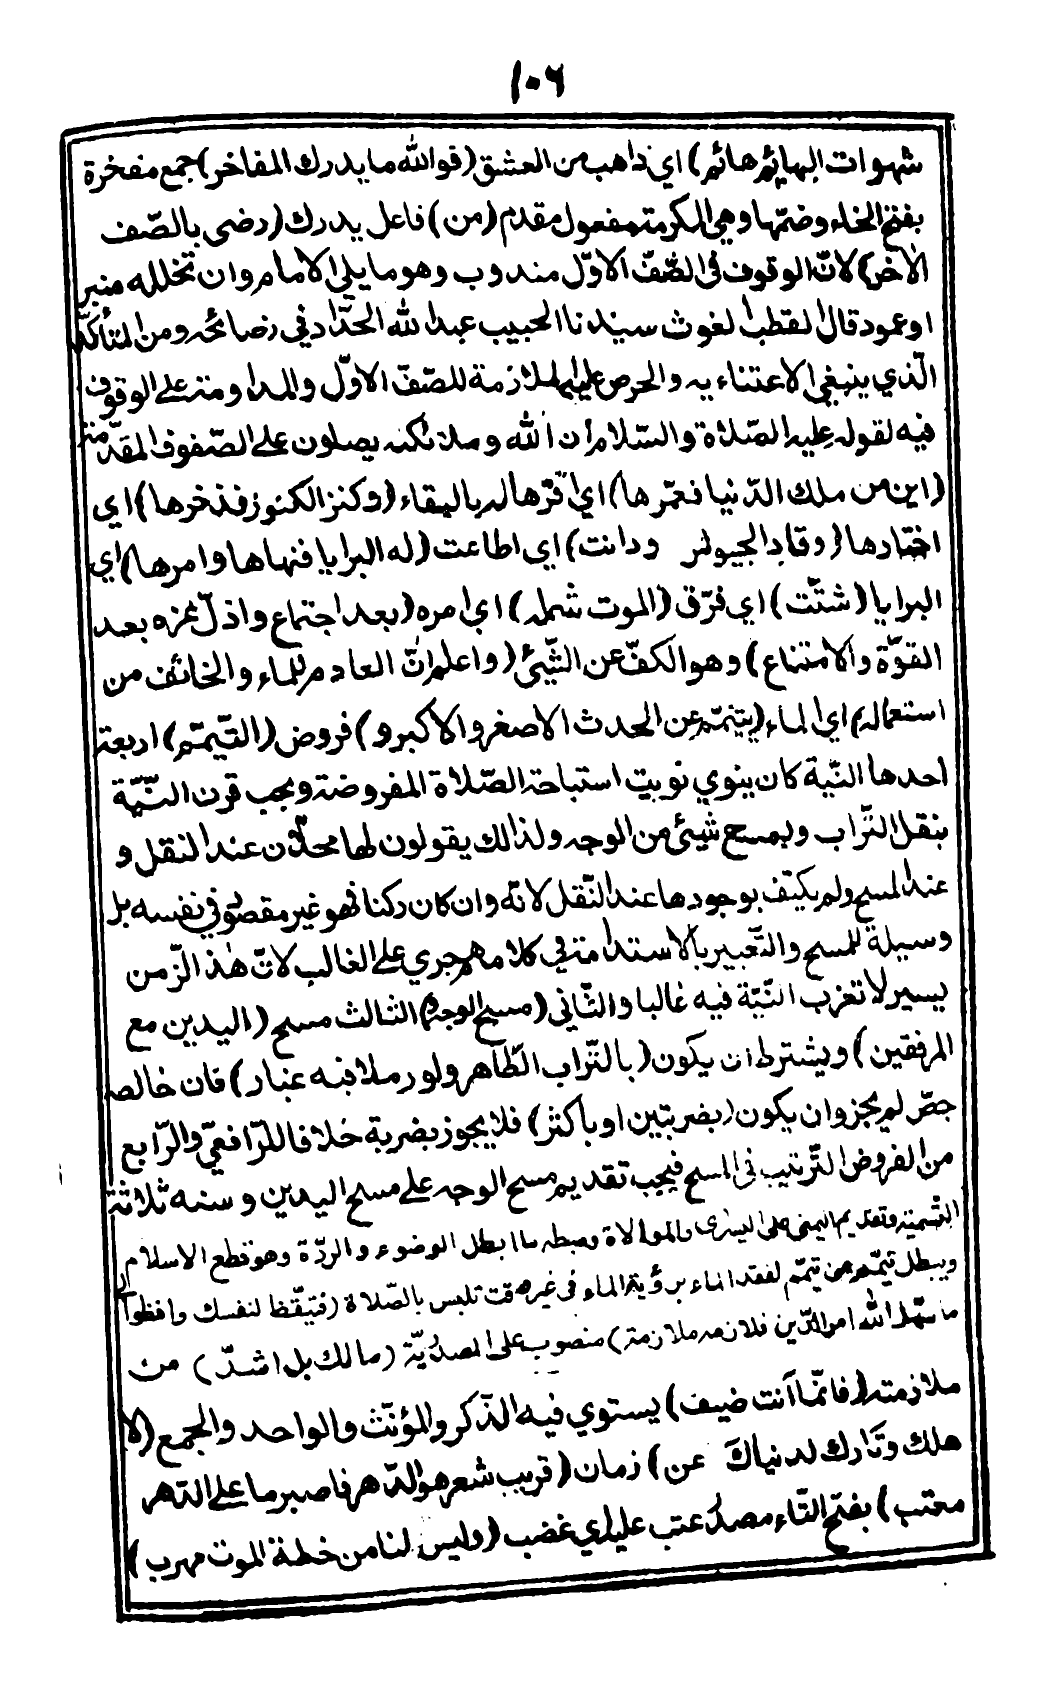 ١٠٦
شهوات البهايم هائم) اي ذاهب من العشق (فوالله ما يدرك المفاخر) جمع مفخرة
بفتح الخاء وضمّها وهي المكرمة مفعول مقدم (من) فاعل يدرك (رضى بالصّف
الآخر) لانّه الوقوف فى الصّفّ الاوّل مندوب وهو ما يلي الامام وان تخلله منبر
او عمود قال القطب الغوث سيدنا الحبيب عبد الله الحدّاد في نصائحه ومن المتأكّد
الّذي ينبغي الاعتناء به والحرص عليه الملازمة للصّفّ الاوّل والمداومة على الوقوف
فيه لقوله عليه الصّلاة والسّلام ان الله وملائكته يصلون على الصّفوف المقدّمة
(اين من ملك الدّنيا فعمّرها) اي قرّها له بالبقاء (وكنز الكنوز فذخرها) اي
اختارها (وقاد الجيوش ودانت) اي اطاعت (له البرايا فنهاها وامرها) اي
البرايا (شتّت) اي فرّق (الموت شمله) اي امره (بعد اجتماع واذلّ عزه بعد
القوّة والامتناع) وهو الكفّ عن الشّيئ (واعلم انّ العادم للماء والخائف من
استعماله) اي الماء (يتيمّم عن الحدث الاصغر والاكبر و) فروض (التّيمّم) اربعة
احدها النيّة كان ينوي نويت استباحة الصّلاة المفروضة ويجب قرن النّيّة
بنقل التّراب وبمسح شيئ من الوجه ولذالك يقولون لها محلّان عند النقل و
عند المسح ولم يكتف بوجودها عند النّقل لانّه وان كان ركنا فهو غير مقصود في نفسه بل
وسيلة للمسح والتّعبير بالاستدامة في كلامهم جري على الغالب لانّ هذا الزّمن
يسير لا تعزب النّيّة فيه غالبا والثّاني (مسح الوجه و) الثالث مسح (اليدين مع
المرفقين) ويشترط ان يكون (بالتّراب الطّاهر ولو رملا فيه غبار) فان خالطه
جصّ لم يجز وان يكون (بضربتين او باكثر) فلا يجوز بضربة خلافا للرّافعيّ والرّابع
من الفروض التّرتيب فى المسح فيجب تقديم مسح الوجه على مسح اليدين وسننه ثلاثة
التّسمية وتقديم اليمنى على اليسرى والموالاة ومبطله ما ابطل الوضوء والردّة وهو قطع الاسلام
ويبطل تيمّم من تيمّم لفقد الماء برؤية الماء فى غير وقت تلبس بالصّلاة (فتيقّظ لنفسك وافظوا
ما سهّل الله امر الدّين فلازمه ملازمة) منصوب على المصدريّة (مالك بل اشدّ) من
ملازمته (فانّما انت ضيف) يستوي فيه الذّكر والمؤنّث والواحد والجمع (لا
هلك وتارك لدنياك عن) زمان (قريب شعر هو الدّهر فاصبر ما على الدّهر
معتب) بفتح التّاء مصدر عتب عليه اي غضب (وليس لنا من خطة الموت مهرب)